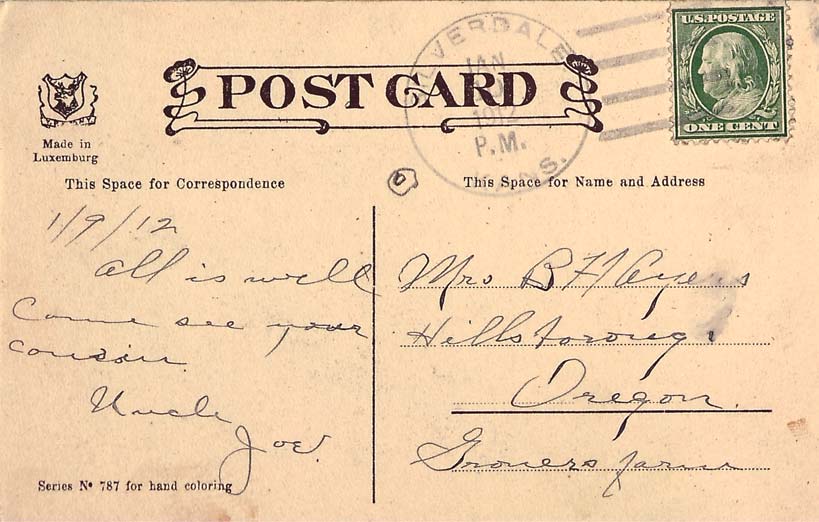 U.S. POSTAGE
ONE CENT
SILVERDALE
JAN
1912
P.M.
KANS.
POST CARD
Made in
Luxemburg
This Space for Correspondence
This Space for Name and Address
1/9/12
All is well
Come see your
cousin.
Uncle
Joe.
Mrs B F Ayers
Hillsboroug
Oregon.
Groners farm
Series Nº 787 for hand coloring